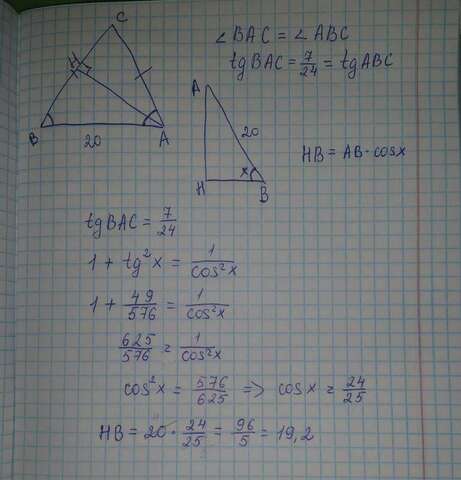 C
∠BAC = ∠ABC
tg BAC = 7/24 = tg ABC
H
B
20
A
A
20
x
H
B
HB = AB · cosx
tg BAC = 7/24
1 + tg²x = 1/cos²x
1 + 49/576 = 1/cos²x
625/576 = 1/cos²x
cos²x = 576/625 => cosx = 24/25
HB = 20 · 24/25 = 96/5 = 19,2